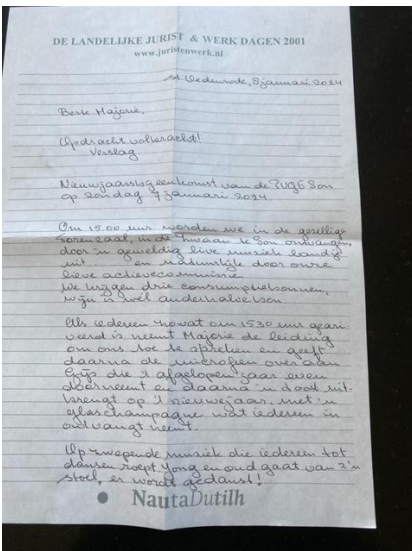 DE LANDELIJKE JURIST & WERK DAGEN 2001
www.juristenwerk.nl
st Oedenrode, 8 januari 2024
Beste Majorie,
Opdracht volbracht!
Verslag.
Nieuwjaarsbijeenkomst van de Son
op Zondag 7 januari 2024.
Om 15.00 uur worden we in de gezellige
Torenzaal, in de Zwaan te Son ontvangen,
door 'n geweldig live muziek bandje
uit en natuurlijk door onze
lieve actieve commissie.
We krijgen drie consumptiebonnen,
wijn is wél anderhalve bon.
Als iedereen zowat om 15.30 uur gearri
veerd is neemt Majorie de leiding
om ons toe te spreken en geeft
daarna de microfoon over aan
Gijs die 't afgelopen jaar even
doorneemt en daarna 'n toost uit-
brengt op 't nieuwejaar. met 'n
glas champagne wat iedereen in
ontvangt neemt.
Op zwepende muziek die iedereen tot
dansen roept. Jong en oud gaat van z'n
stoel, er wordt gedanst!
NautaDutilh